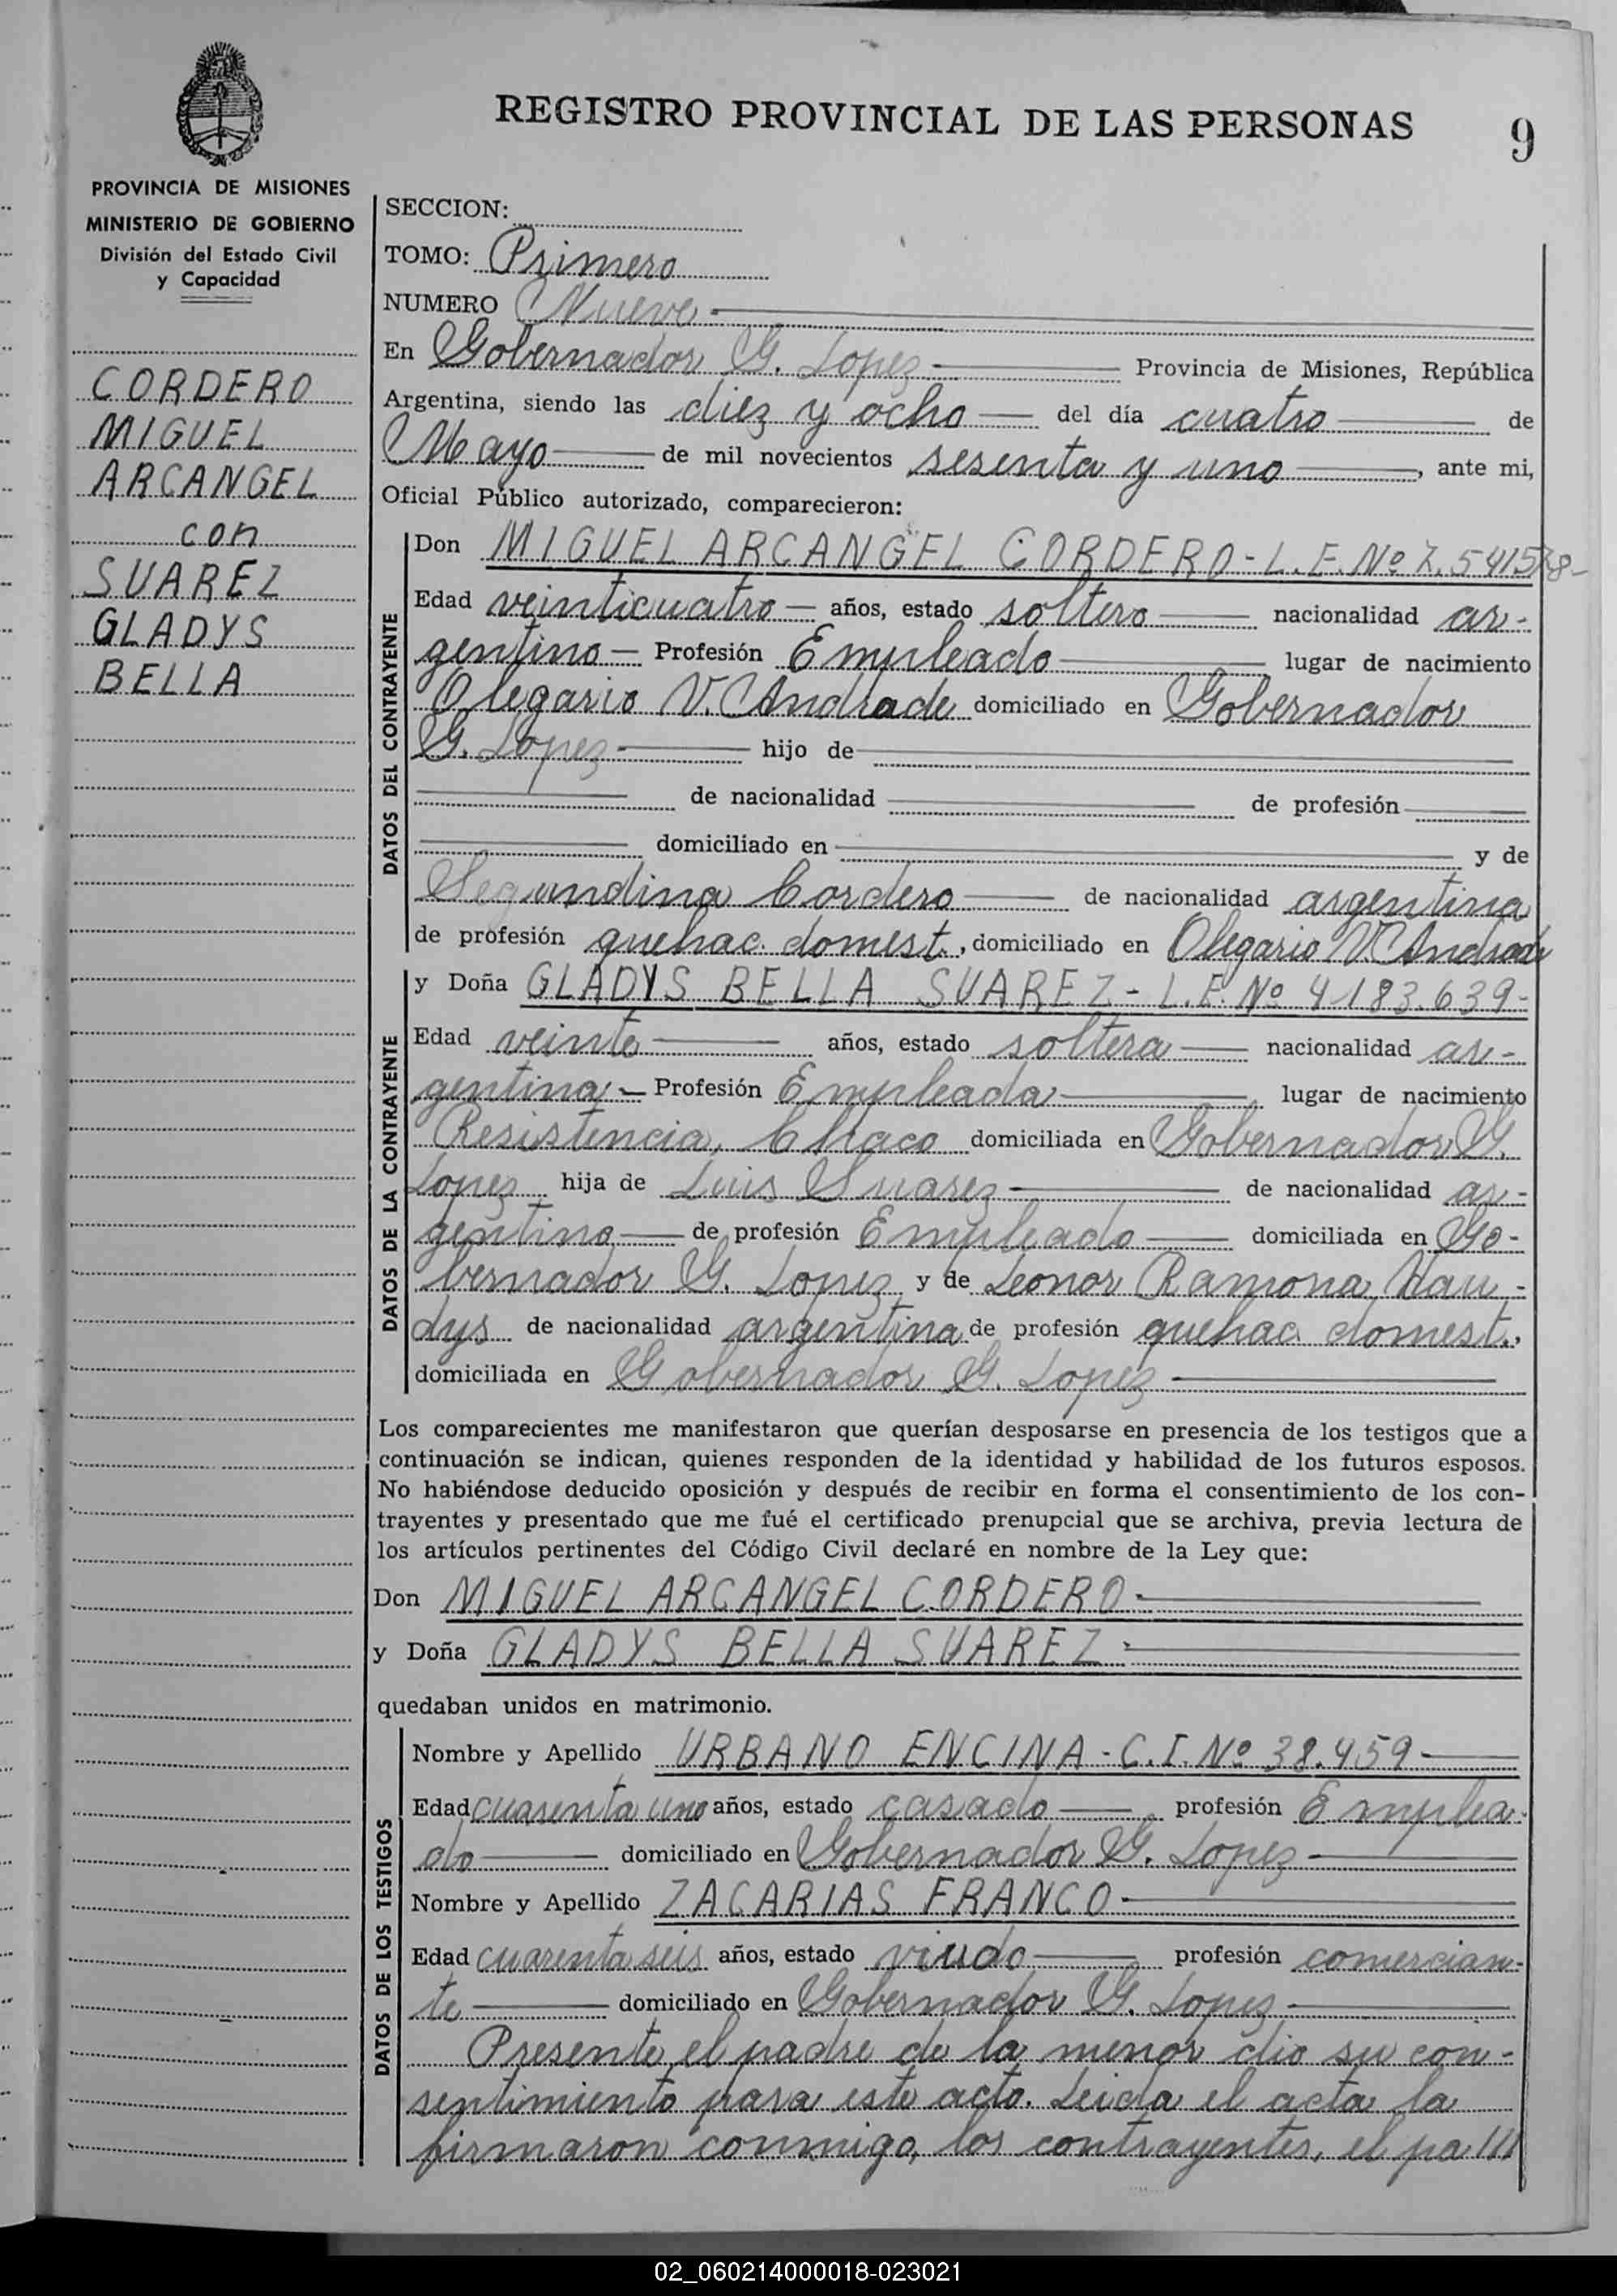 REGISTRO PROVINCIAL DE LAS PERSONAS
9
PROVINCIA DE MISIONES
MINISTERIO DE GOBIERNO
División del Estado Civil
y Capacidad
CORDERO
MIGUEL
ARCANGEL
con
SUAREZ
GLADYS
BELLA
SECCION:
TOMO: Primero
NUMERO Nueve
En Gobernador G. Lopez Provincia de Misiones, República
Argentina, siendo las diez y ocho del día cuatro de
Mayo de mil novecientos sesenta y uno, ante mi,
Oficial Público autorizado, comparecieron:
DATOS DEL CONTRAYENTE
Don MIGUEL ARCANGEL CORDERO - L.E. Nº
Edad veinticuatro años, estado soltero nacionalidad ar-
gentino Profesión Empleado lugar de nacimiento
Olegario V. Andrade domiciliado en Gobernador
G. Lopez hijo de
de nacionalidad de profesión
domiciliado en y de
Segundina Cordero de nacionalidad argentina
de profesión quehac. domest., domiciliado en Olegario V. Andrade
DATOS DE LA CONTRAYENTE
y Doña GLADYS BELLA SUAREZ - L.E. Nº 4.183.639-
Edad veinte años, estado soltera nacionalidad ar-
gentina Profesión Empleada lugar de nacimiento
Resistencia, Chaco domiciliada en Gobernador G.
Lopez, hija de Luis Suarez de nacionalidad ar-
gentino de profesión Empleado domiciliada en Go-
bernador G. Lopez y de Leonor Ramona
dys de nacionalidad argentina de profesión quehac domest.,
domiciliada en Gobernador G. Lopez
Los comparecientes me manifestaron que querían desposarse en presencia de los testigos que a
continuación se indican, quienes responden de la identidad y habilidad de los futuros esposos.
No habiéndose deducido oposición y después de recibir en forma el consentimiento de los con-
trayentes y presentado que me fué el certificado prenupcial que se archiva, previa lectura de
los artículos pertinentes del Código Civil declaré en nombre de la Ley que:
Don MIGUEL ARCANGEL CORDERO
y Doña GLADYS BELLA SUAREZ
quedaban unidos en matrimonio.
DATOS DE LOS TESTIGOS
Nombre y Apellido URBANO ENCINA - C.I. Nº 38.459
Edad cuarenta uno años, estado casado profesión Emplea-
do domiciliado en Gobernador G. Lopez
Nombre y Apellido ZACARIAS FRANCO
Edad cuarenta seis años, estado viudo profesión comercian-
te domiciliado en Gobernador G. Lopez
Presente el padre de la menor dio su con-
sentimiento para este acto. Leida el acta la
firmaron conmigo, los contrayentes, el pa///
02_060214000018-023021